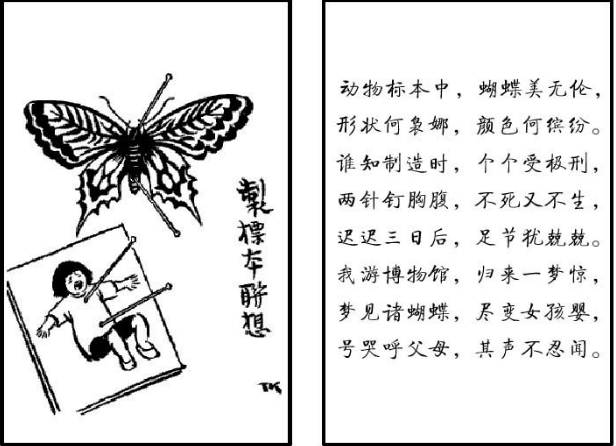 製標本聯想
TK
动物标本中，蝴蝶美无伦，
形状何袅娜，颜色何缤纷。
谁知制造时，个个受极刑，
两针钉胸腹，不死又不生，
迟迟三日后，足节犹兢兢。
我游博物馆，归来一梦惊，
梦见诸蝴蝶，尽变女孩婴，
号哭呼父母，其声不忍闻。